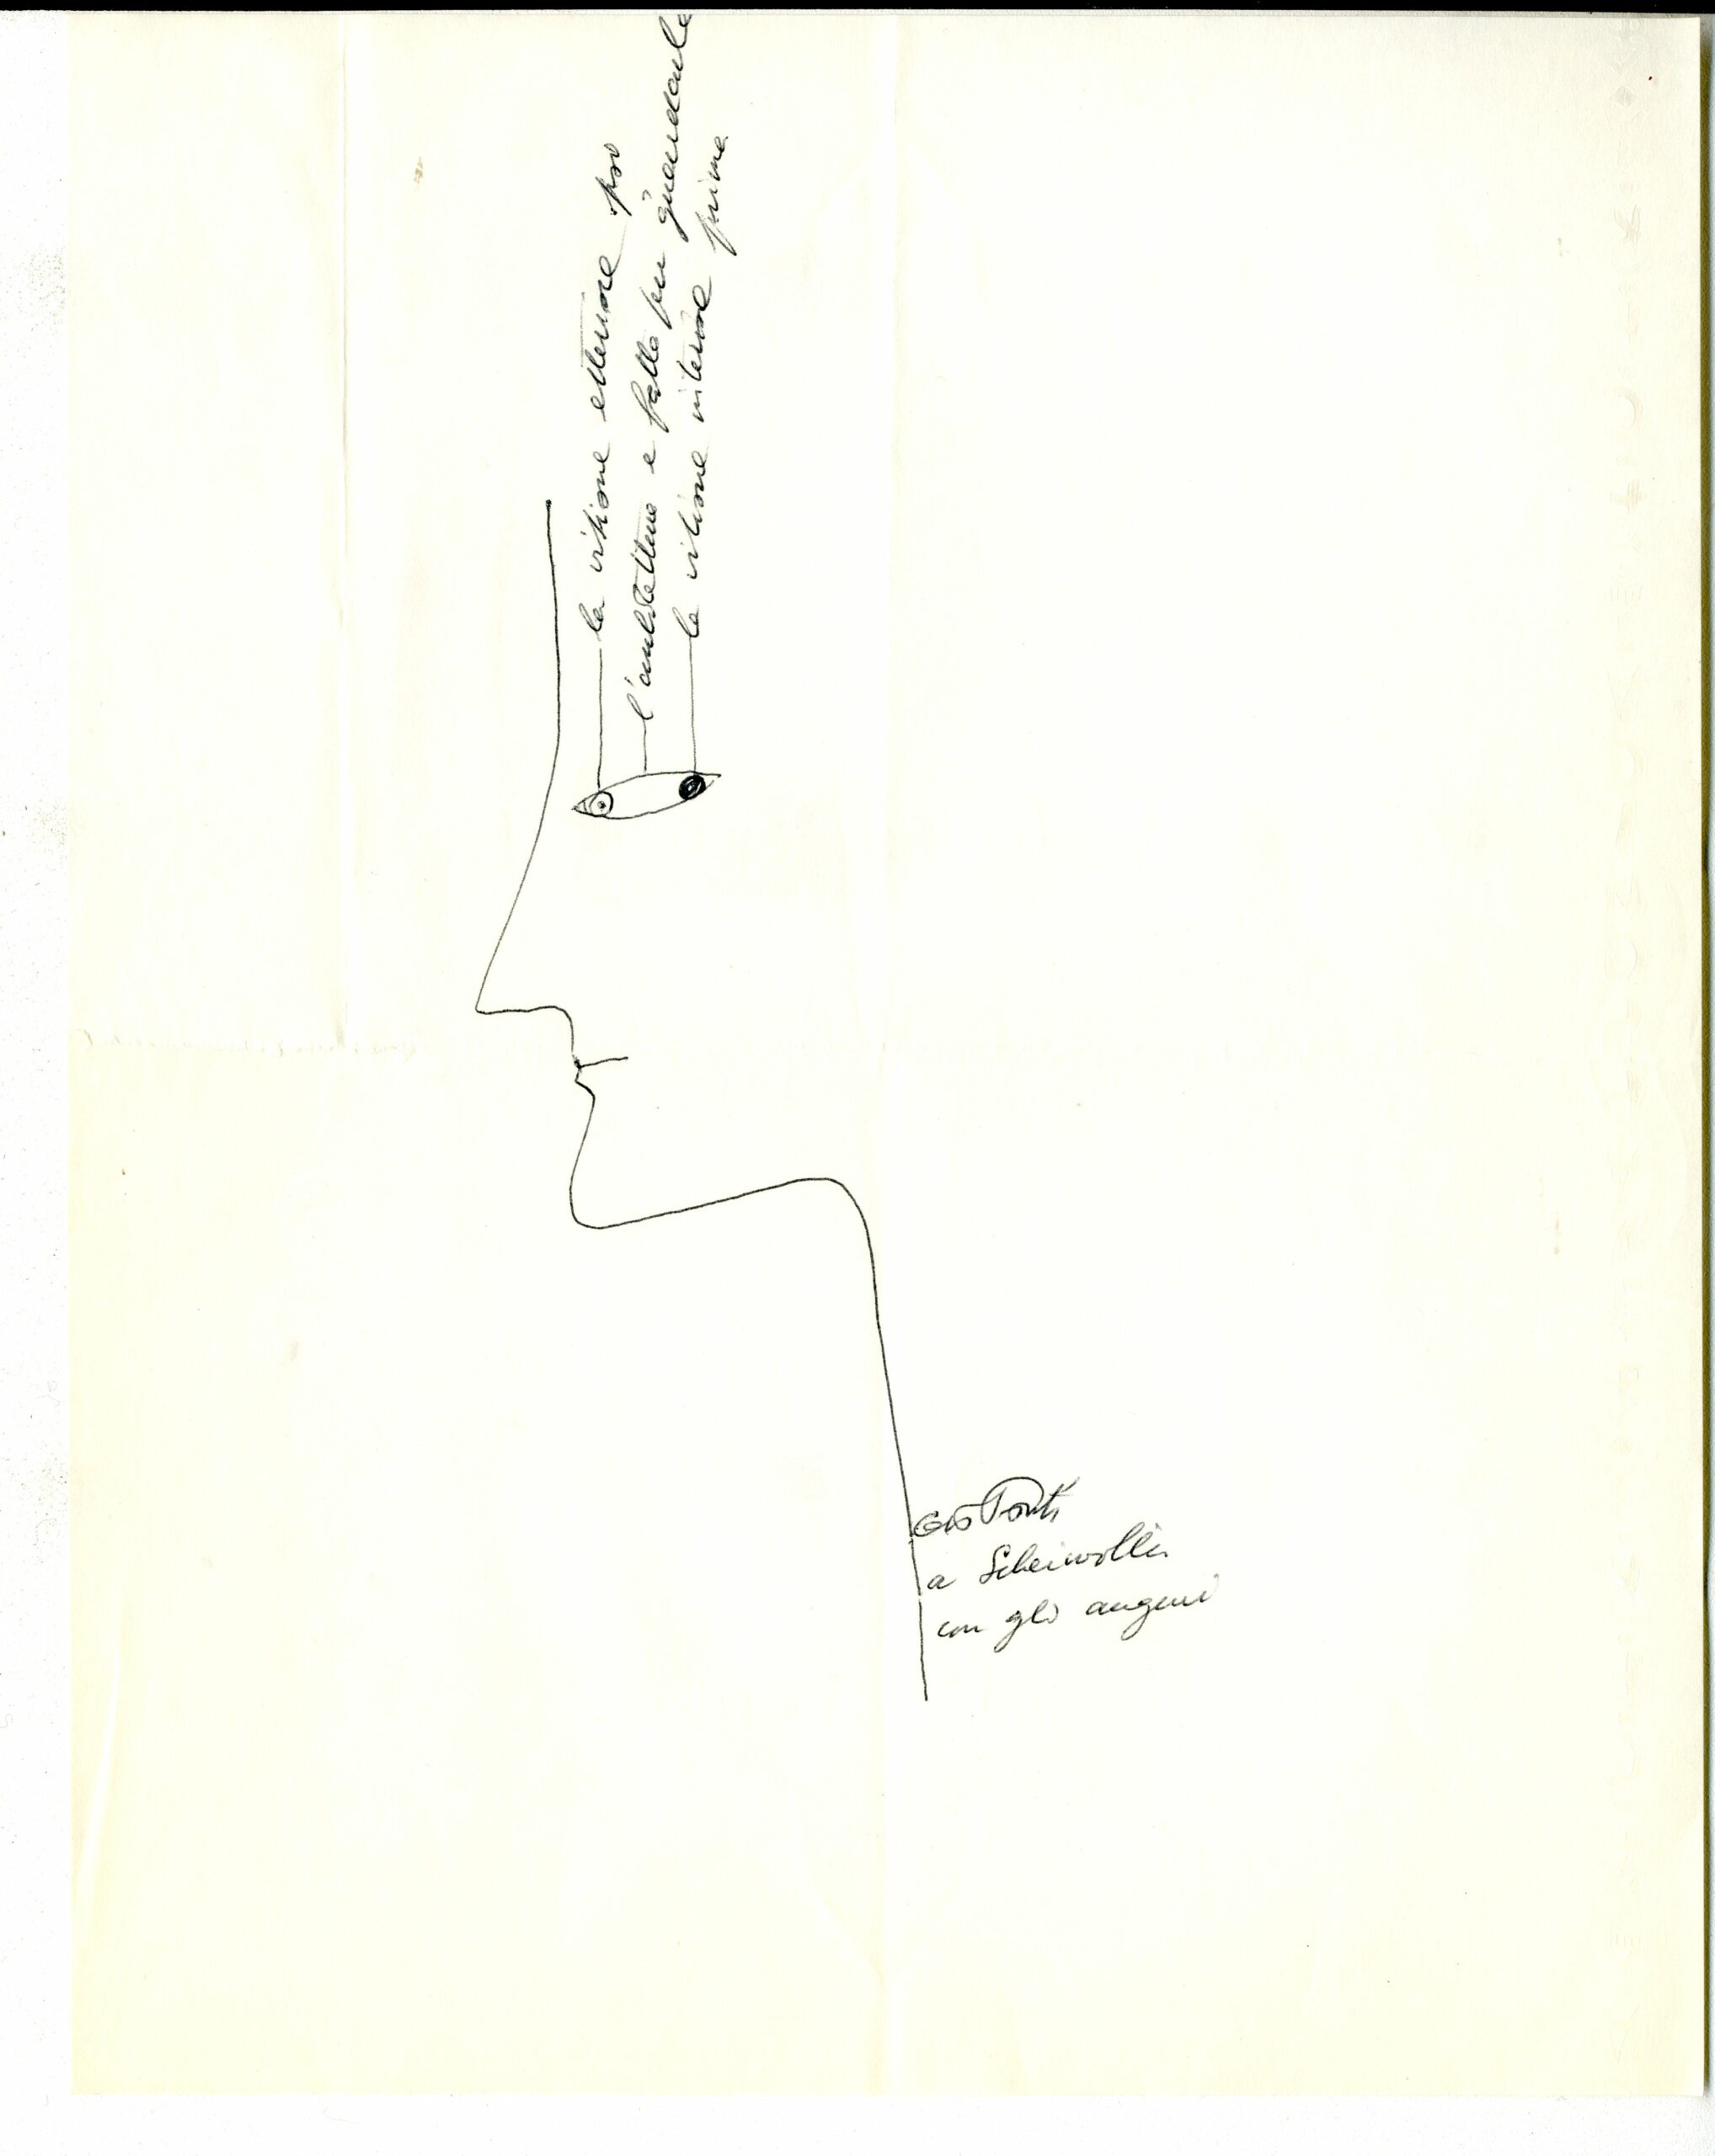 la visione esterna poi
l'architettura è fatta per guardarla
la visione interna prima
Gio Ponti
a Scheiwiller
con gli auguri